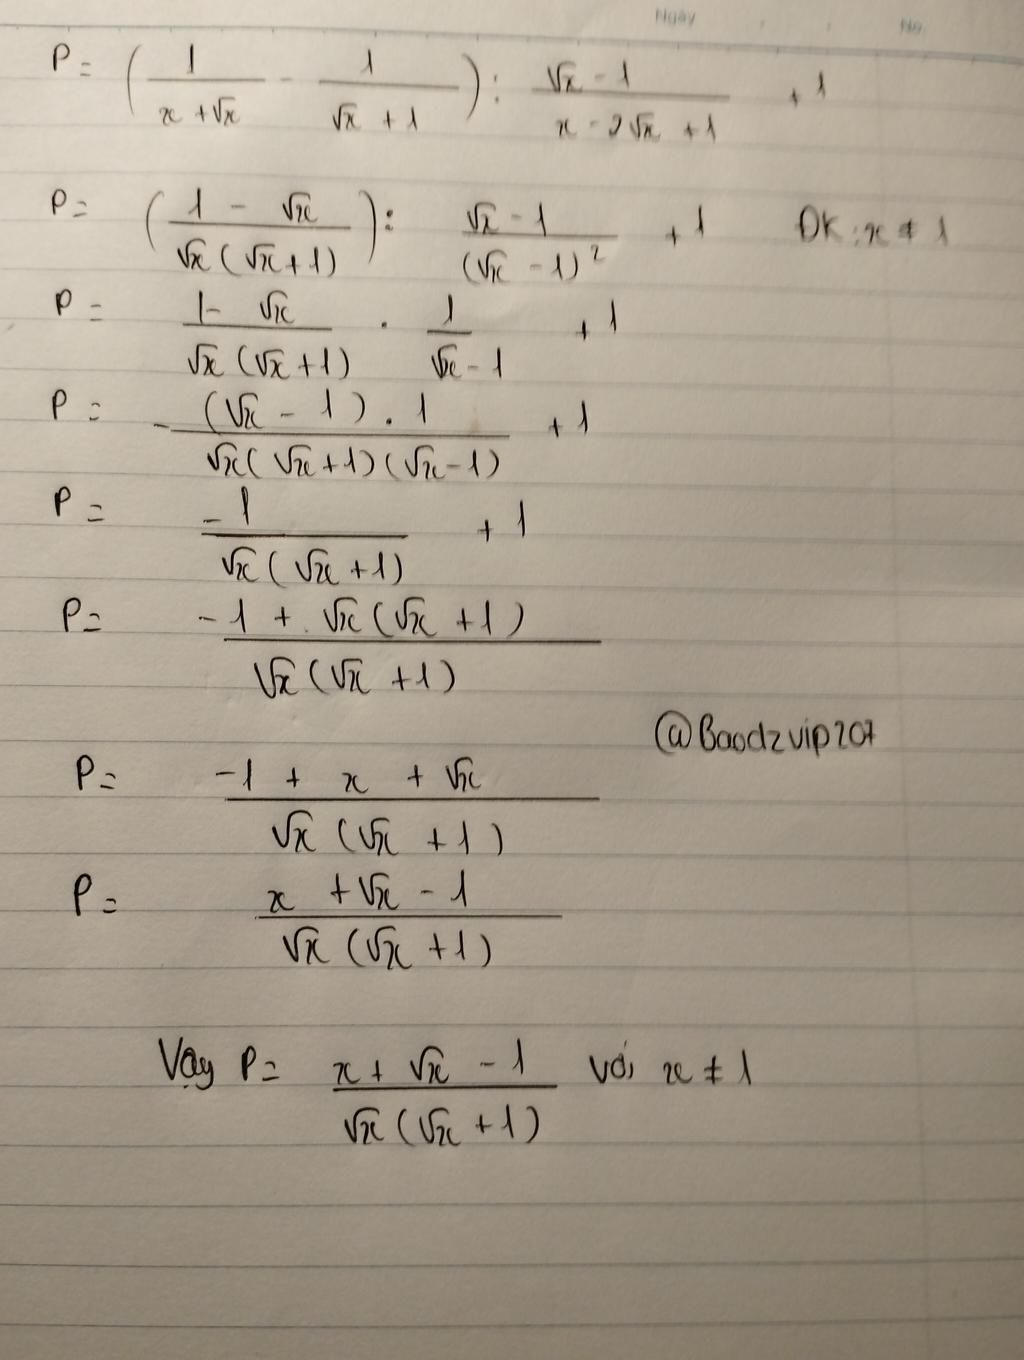 Ngày No.
P = ( 1/(x + √x) - 1/(√x + 1) ) : (√x - 1)/(x - 2√x + 1) + 1
P = ( (1 - √x)/(√x(√x + 1)) ) : (√x - 1)/(√x - 1)² + 1 ĐK : x ≠ 1
P = (1 - √x)/(√x(√x + 1)) . 1/(√x - 1) + 1
P = - ((√x - 1) . 1)/(√x(√x + 1)(√x - 1)) + 1
P = -1/(√x(√x + 1)) + 1
P = (-1 + √x(√x + 1))/(√x(√x + 1))
@Baodzvip207
P = (-1 + x + √x)/(√x(√x + 1))
P = (x + √x - 1)/(√x(√x + 1))
Vậy P = (x + √x - 1)/(√x(√x + 1)) với x ≠ 1